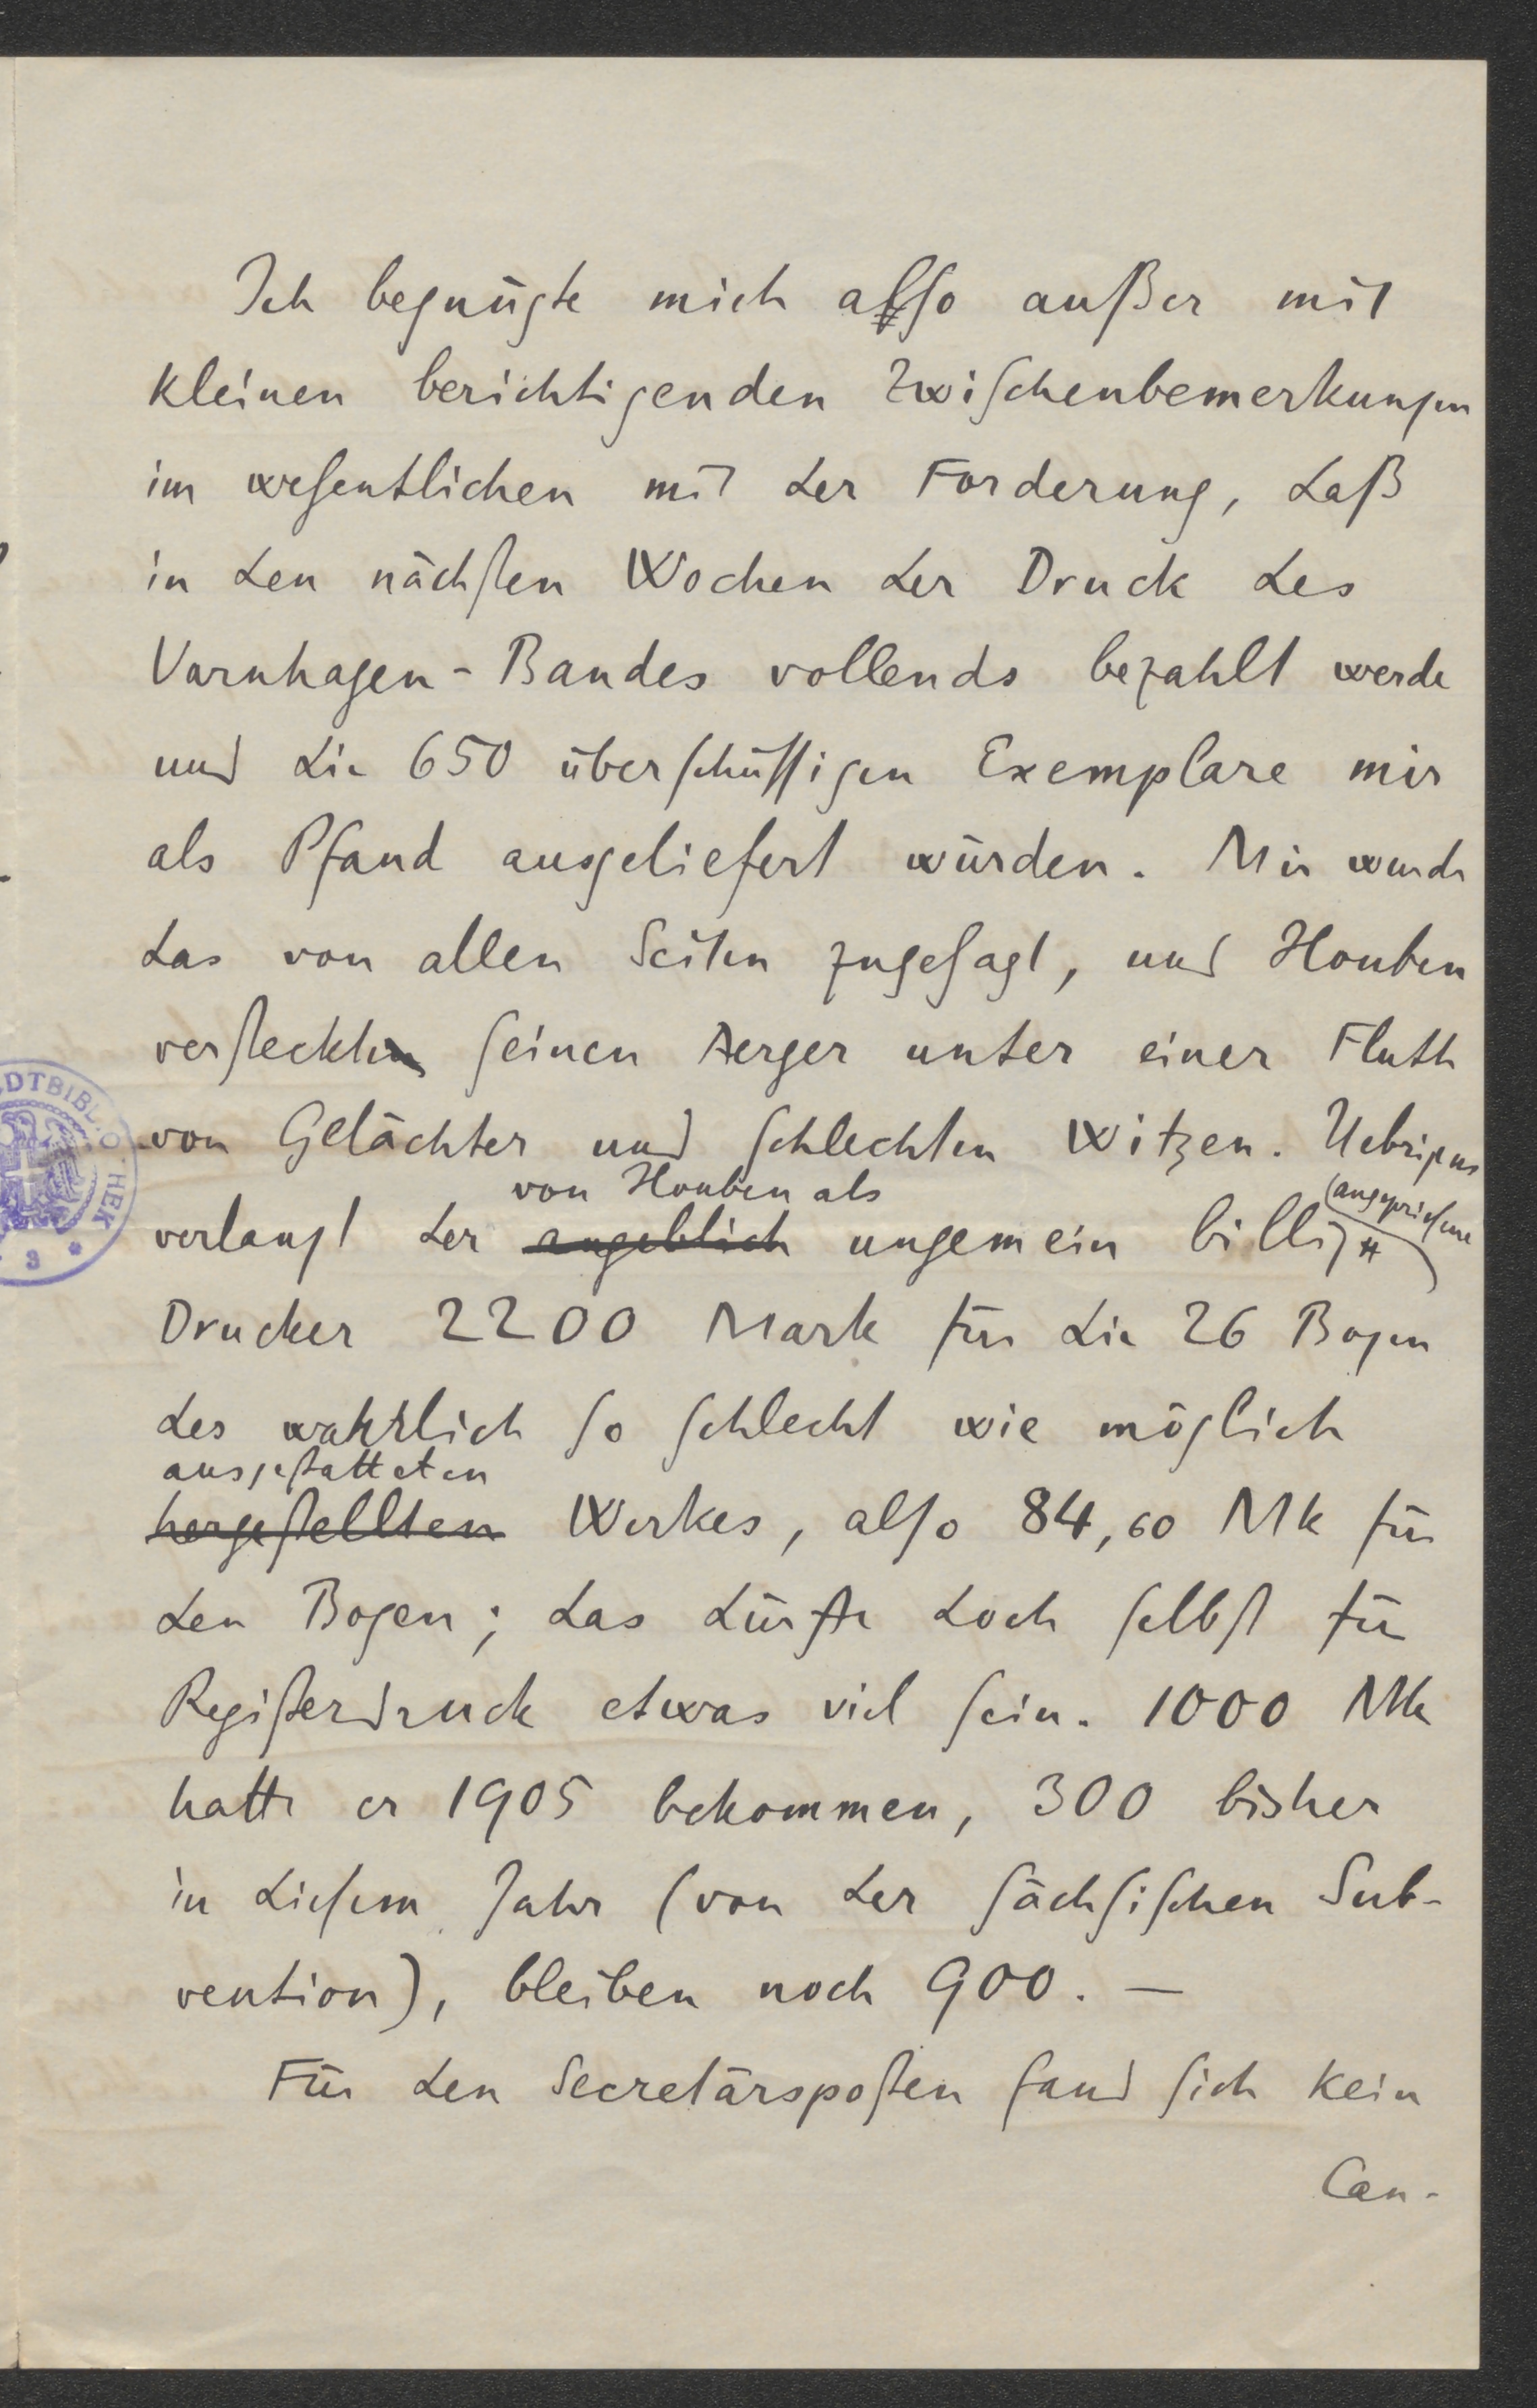 Ich begnügte mich also außer mit
kleinen berichtigenden Zwischenbemerkungen
im wesentlichen mit der Forderung, daß
in den nächsten Wochen der Druck des
Varnhagen-Bandes vollends bezahlt werde
und die 650 überschüssigen Exemplare mir
als Pfand ausgeliefert würden. Mir wurde
das von allen Seiten zugesagt, und Houben
versteckte seinen Aerger unter einer Fluth
von Gelächter und schlechten Witzen. Uebrigens
von Houben als (angepriesene)
verlangt der angeblich ungemein billig
Drucker 2200 Mark für die 26 Bogen
des wahrlich so schlecht wie möglich
ausgestatteten
hergestellten Werkes, also 84,60 Mk für
den Bogen; das dürfte doch selbst für
Registerdruck etwas viel sein. 1000 Mk
hatte er 1905 bekommen, 300 bisher
in diesem Jahr (von der sächsischen Sub-
vention), bleiben noch 900. —
Für den Secretärsposten fand sich kein
Can-
DTBIBLIOTHEK